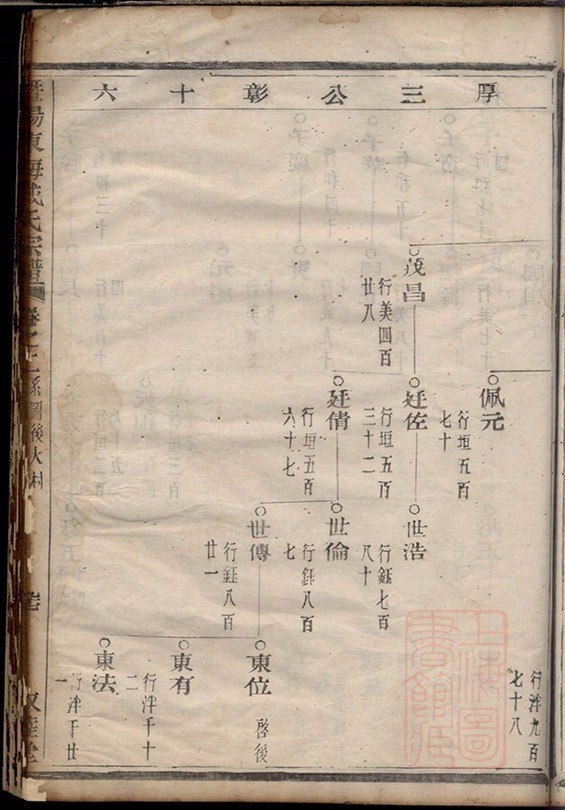 厚三公彰十六
行泮九百七十八
佩元
行垣五百七十
茂昌
行美四百廿八
廷佐
行垣五百三十二
世浩
行鈺七百八十
廷倩
行垣五百六十七
世倫
行鈺八百七
世傳
行鈺八百廿一
東位
啓後
東有
行泮千十二
東法
行泮千廿一
暨陽東海戚氏宗譜
系圖後大村
上海圖書館藏